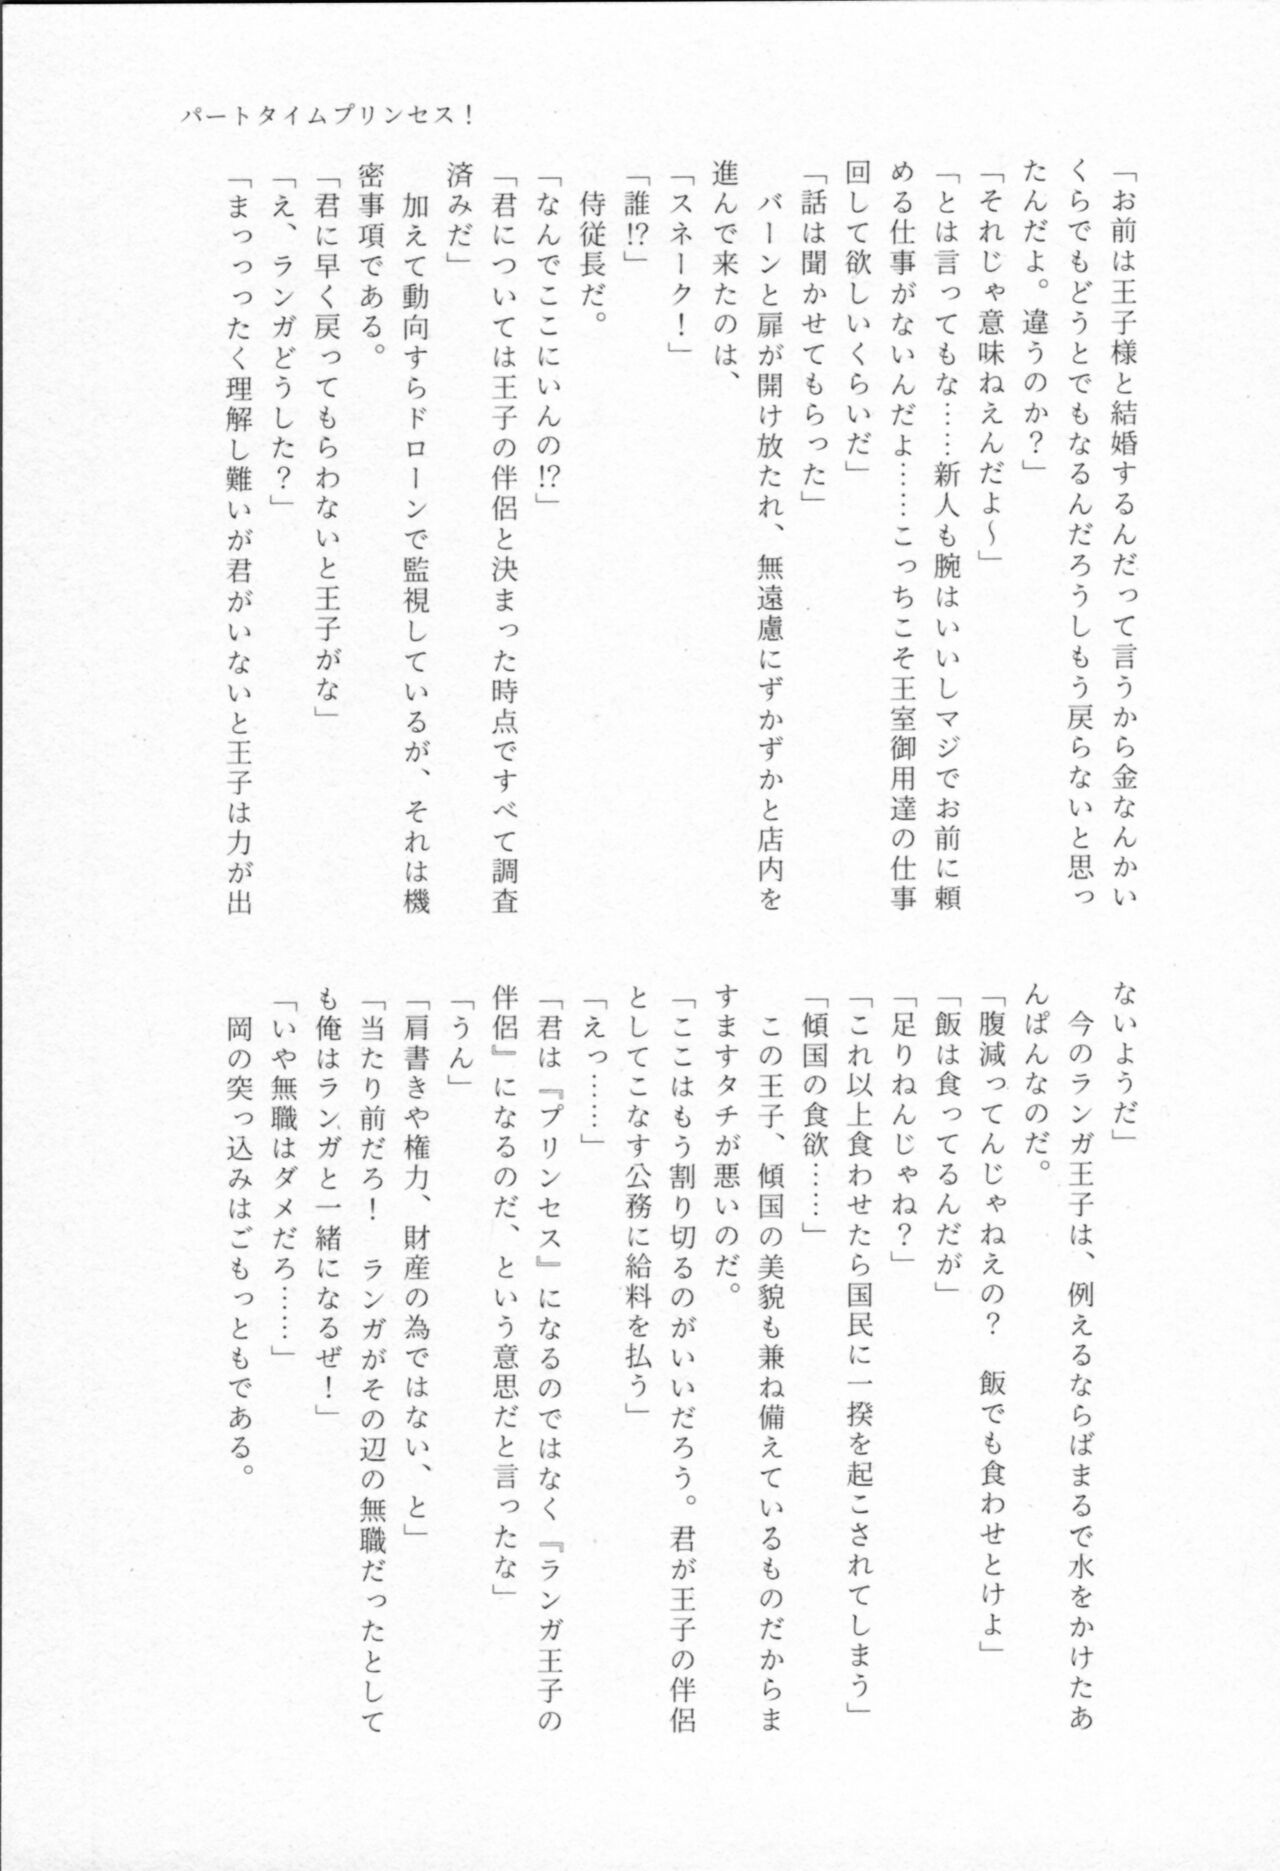 パートタイムプリンセス！
「お前は王子様と結婚するんだって言うから金なんかい
くらでもどうとでもなるんだろうしもう戻らないと思っ
たんだよ。違うのか？」
「それじゃ意味ねえんだよ～」
「とは言ってもな……新人も腕はいいしマジでお前に頼
める仕事がないんだよ……こっちこそ王室御用達の仕事
回して欲しいくらいだ」
「話は聞かせてもらった」
　バーンと扉が開け放たれ、無遠慮にずかずかと店内を
進んで来たのは、
「スネーク！」
「誰!?」
　侍従長だ。
「なんでここにいんの!?」
「君については王子の伴侶と決まった時点ですべて調査
済みだ」
　加えて動向すらドローンで監視しているが、それは機
密事項である。
「君に早く戻ってもらわないと王子がな」
「え、ランガどうした？」
「まっっったく理解し難いが君がいないと王子は力が出
ないようだ」
　今のランガ王子は、例えるならばまるで水をかけたあ
んぱんなのだ。
「腹減ってんじゃねえの？　飯でも食わせとけよ」
「飯は食ってるんだが」
「足りねんじゃね？」
「これ以上食わせたら国民に一揆を起こされてしまう」
「傾国の食欲……」
　この王子、傾国の美貌も兼ね備えているものだからま
すますタチが悪いのだ。
「ここはもう割り切るのがいいだろう。君が王子の伴侶
としてこなす公務に給料を払う」
「えっ……」
「君は『プリンセス』になるのではなく『ランガ王子の
伴侶』になるのだ、という意思だと言ったな」
「うん」
「肩書きや権力、財産の為ではない、と」
「当たり前だろ！　ランガがその辺の無職だったとして
も俺はランガと一緒になるぜ！」
「いや無職はダメだろ……」
　岡の突っ込みはごもっともである。